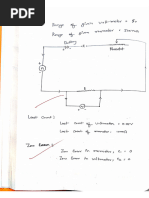 Range of given voltmeter = 3v
Range of given ammeter =
Battery
Rheostat
Least Count:
Least count of voltmeter =
Least count of ammeter =
Zero Error:
Zero Error to ammeter, e₁ = 0
Zero Error to voltmeter, e₂ = 0